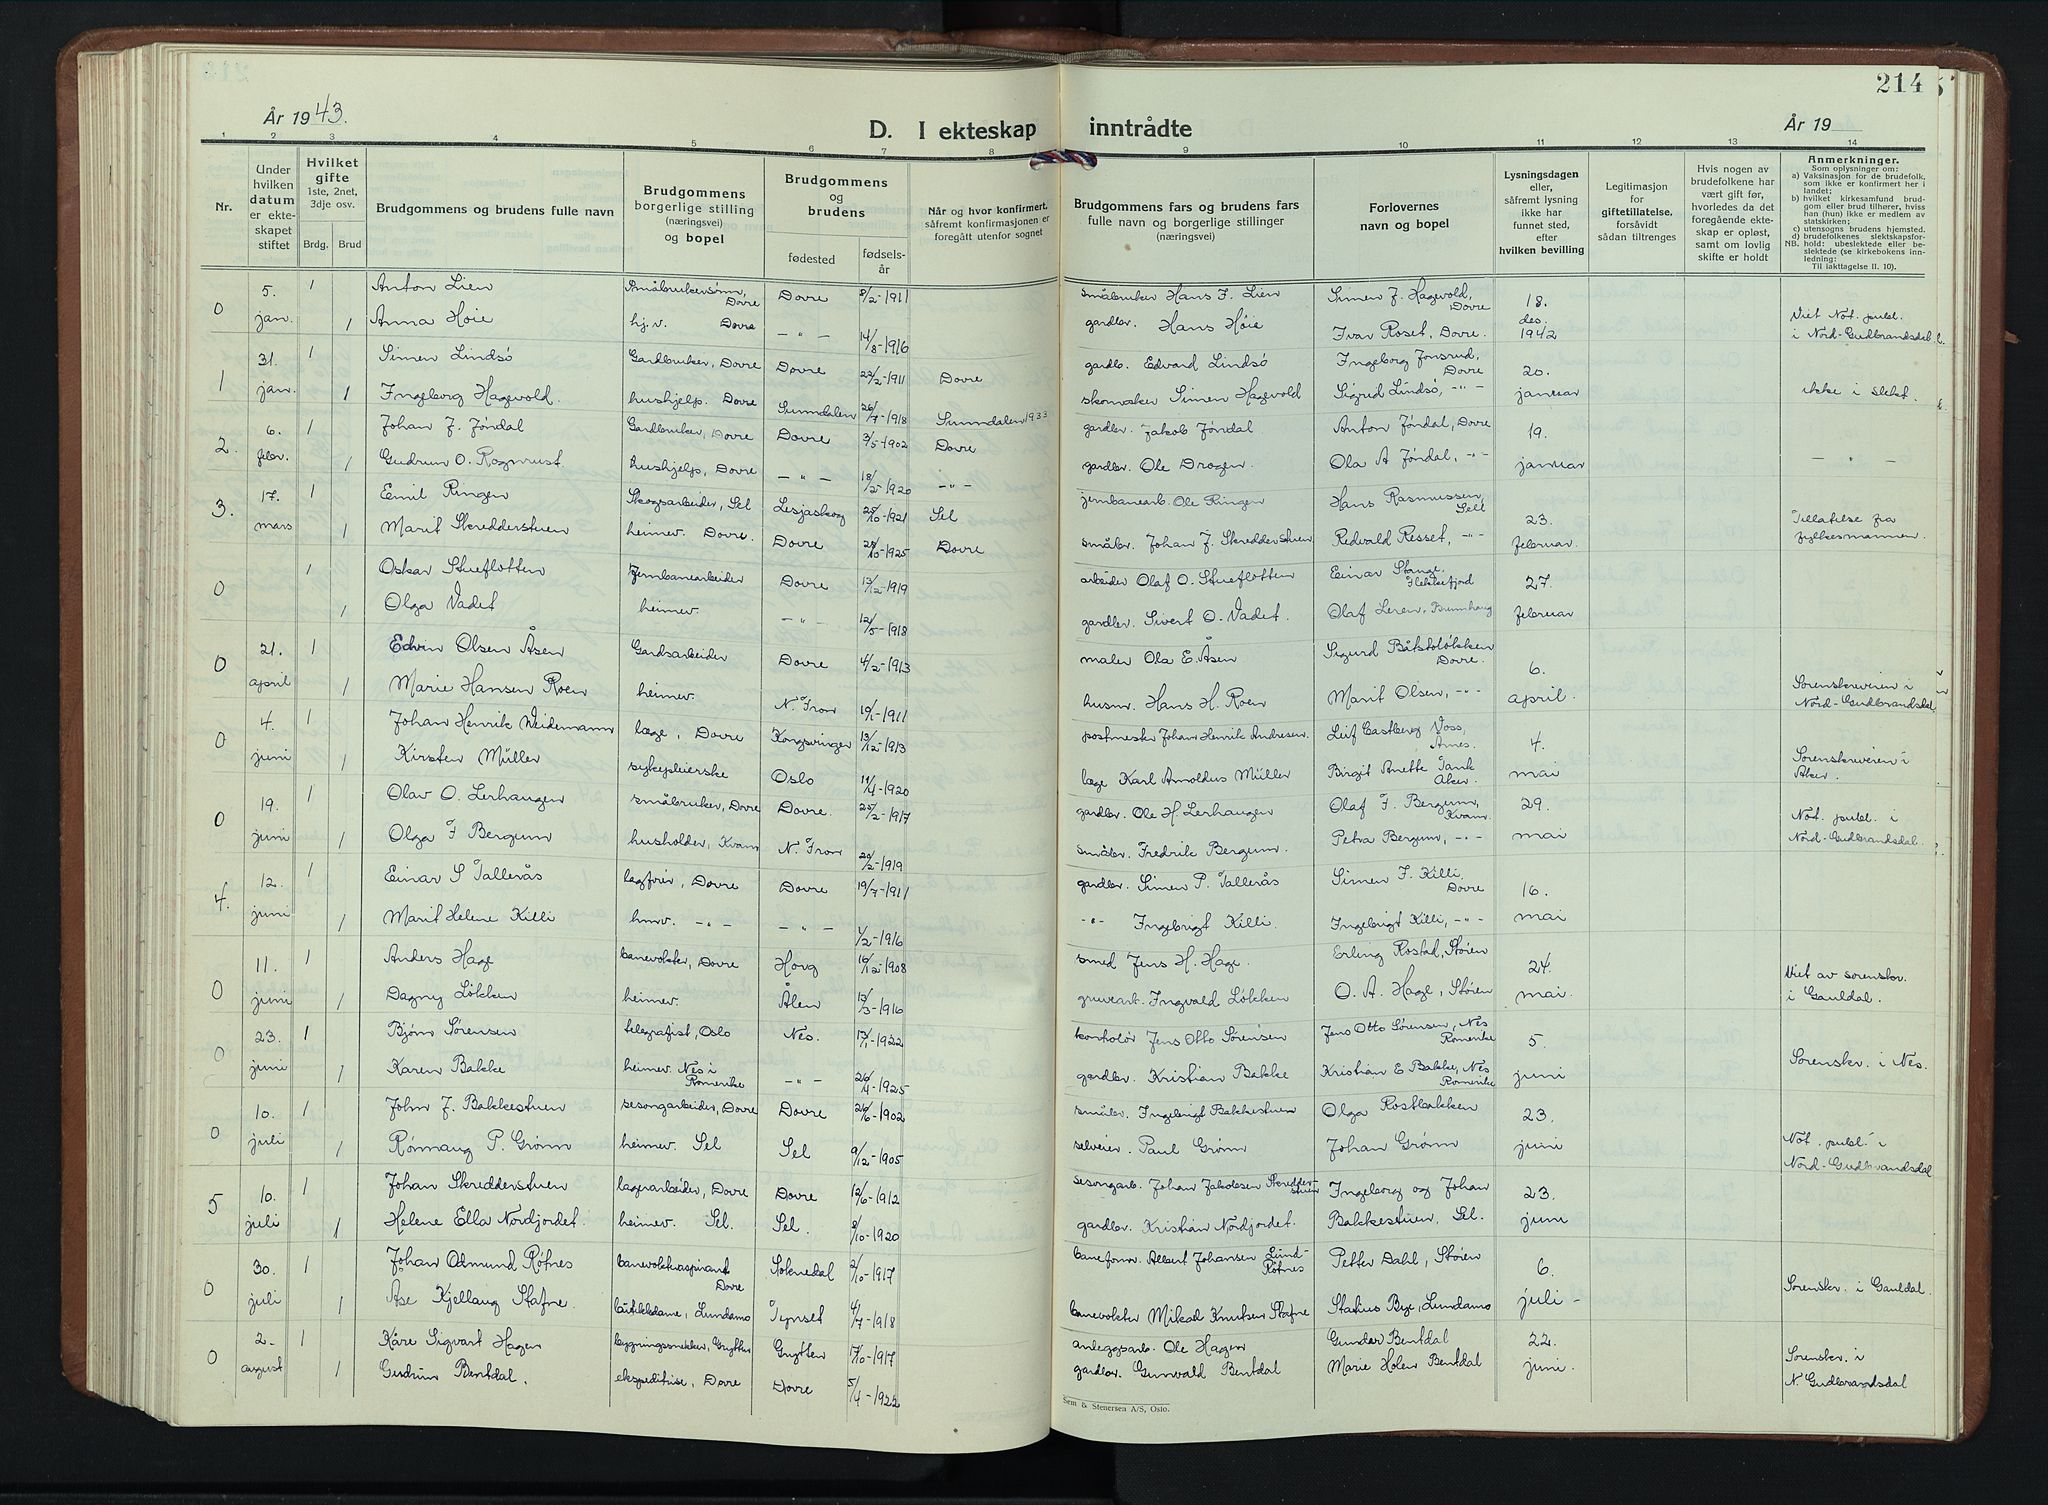 214
År 1943.
D. I ekteskap inntrådte
År 19
1 2 3 4 5 6 7 8 9 10 11 12 13 14
Nr.
Under hvilken datum er ekteskapet stiftet
Hvilket gifte 1ste, 2net, 3dje osv.
Brdg. Brud
Brudgommens og brudens fulle navn
Brudgommens borgerlige stilling (næringsvei) og bopel
Brudgommens og brudens
fødested fødselsår
Når og hvor konfirmert, såfremt konfirmasjonen er foregått utenfor sognet
Brudgommens fars og brudens fars fulle navn og borgerlige stillinger (næringsvei)
Forlovernes navn og bopel
Lysningsdagen eller, såfremt lysning ikke har funnet sted, efter hvilken bevilling
Legitimasjon for giftetillatelse, forsåvidt sådan tiltrenges
Hvis nogen av brudefolkene har vært gift før, hvorledes da det foregående ekteskap er opløst, samt om lovlig skifte er holdt
Anmerkninger.
Som oplysninger om:
a) Vaksinasjon for de brudefolk, som ikke er konfirmert her i landet;
b) hvilket kirkesamfund brudgom eller brud tilhører, hviss han (hun) ikke er medlem av statskirken;
c) utensogns brudens hjemsted.
d) brudefolkenes slektskapsforhold: ubeslektede eller beslektede (se kirkebokens innledning:
NB.
Til iakttagelse II. 10).
0 5. jan. 1 Anton Lien Småbrukersønn, Dovre Dovre 8/2-1911 småbruker Hans F. Lien Simen J. Hagevold, Dovre 18. des. 1942 Viet Not. publ. i Nord-Gudbrandsdal
1 Anna Høie hj.v. Dovre — " — 14/8-1916 gardbr. Hans Høie Ivar Roset, Dovre.
1 31. jan. 1 Simen Lindsø Gardbruker, Dovre Dovre 22/2-1911 Dovre gardb. Edvard Lindsø Ingeborg Jonsrud, Dovre 20. januar ikke i slekt.
1 Ingeborg Hagevold. hushjelp. Dovre Sunndalen 26/7-1918 Sunndalen 1933 skomaker Simen Hagevold Sigrid Lindsø, -"-
2. 6. febr. 1 Johan J. Jøndal Gardbruker, Dovre Dovre 3/5-1902 Dovre gardbr. Jakob Jøndal Anton Jøndal, Dovre 19. januar — " —
1 Gudrun O. Rognrust hushjelp, Dovre — " — 18/2-1920 — " — gardbr. Ole Drogen. Ola A Jøndal, -"-
3. 17. mars 1 Emil Ringen Skogsarbeider, Sel Lesjaskog 25/10-1921 Sel jernbanearb. Ole Ringen Hans Rasmussen, Sell 23. februar. Tillatelse fra fylkesmannen.
1 Marit Skredderstuen heimev. Dovre. Dovre 28/10-1925 Dovre småbr. Johan J. Skredderstuen Redvald Resset, -"-
0 1 Oskar Stueflotten Jernbanearbeider Dovre 13/12-1919 arbeider Olaf O. Stueflotten Einar Stange, 27. februar
1 Olga Vadet heimev. — " — 12/5-1918 gardbr. Sivert O. Vadet. Olaf Leren, Brennhaug
0 21. april 1 Edvin Olsen Åsen Gardsarbeider Dovre 4/2-1913 maler Ola E. Åsen Sigurd Båtstoløkken Dovre. 6. april. Sorenskriveren i Nord-Gudbrandsdal
1 Marie Hansen Roen heimev. N. Fron 10/1-1911 husm. Hans H. Roen Marit Olsen, -"-
0 4. juni 1 Johan Henrik Weidemann læge, Dovre Kongsvinger 13/12-1913 postmester Johan Henrik Andresen. Leif Castberg Voss, Årnes. 4. mai Sorenskriveren i Aker.
1 Kirsten Müller sykepleierske Oslo 11/4-1920 læge Karl Arnoldus Müller Birgit Anette Tank Aker
0 19. juni 1 Olav O. Lerhaugen småbruker, Dovre Dovre. 25/2-1917 gardbr. Ole H. Lerhaugen Olaf F. Bergum, Kvam. 29. mai Not. publ. i Nord-Gudbrandsdal.
1 Olga F Bergum husholder, Kvam N. Fron 20/2-1919 småbr. Fredrik Bergum. Petra Bergum, -"-
4. 12. juni 1 Einar S Tallerås Dovre Dovre 19/7-1911 gardbr. Simen P. Tallerås Simen F. Killi, Dovre 16. mai
1 Marit Helene Killi hmv. -"- — " — 1/2-1916 -"- Ingebrigt Killi. Ingebrigt Killi, -"-
0 11. juni 1 Anders Hage banevokter, Dovre Horg 16/12-1908 smed Jens H. Hage. Erling Rostad, Støren 24. mai. Viet av sorenskr. i Gauldal.
1 Dagny Løkken heimev. Ålen 13/3-1916 gruvearb. Ingvald Løkken O. A. Hage, Støren
0 23. juni 1 Bjørn Sørensen telegrafist, Oslo Nes. 13/1-1922 kontrolør Jens Otto Sørensen Jens Otto Sørensen, Nes Romerike 5. juni Sorenskr. i Nes.
1 Karen Bakke heimev. Nes i Romerike — " — 26/4-1925 gardbr. Kristian Bakke Kristian E Bakke, Nes Romerike
0 10. juli 1 John J. Bakkestuen sesongarbeider, Dovre Dovre 26/6-1902 småbr. Ingebrigt Bakkestuen Olga Rostbakken 23. juni Not. publ. i Nord-Gudbrandsdal
1 Rønnaug P. Grønn heimev. Sel Sel 9/12-1905 selveier. Paul Grønn Johan Grønn
5 10. juli 1 Johan Skredderstuen lagerarbeider, Dovre Dovre 12/6-1912 sesongarb. Johan Jakobsen Skredderstuen Ingeborg og Johan 23. juni
1 Helene Ella Nordjordet. heimev. Sel. Sel. 8/10-1920 gardbr. Kristian Nordjordet. Bakkestuen, Sel.
0 30. juli 1 Johan Odmund Røtnes banevokteraspirant Dovre Soknedal 2/10-1917 baneform. Albert Johansen Lund-Røtnes Petter Dahl, Støren 6. juli - Sorenskr. i Gauldal.
1 Åse Kjellaug Stafne. butikkdame, Lundamo Tynset 4/7-1918 banevokter Mikal Knutsen Stafne Bye, Lundamo
0 2. august 1 Kåre Sigvart Hagen bygningssnekker, Grytten Grytten 17/10-1917 anleggsarb. Ole Hagen Gunder Bentdal 22. juni. Sorenskr. i N. Gudbrandsdal
1 Gudrun Bentdal. ekspeditrise, Dovre Dovre 5/4-1922 gardbr. Gunvald Bentdal Marie Holen Bentdal
Sem & Stenersen A/S, Oslo.